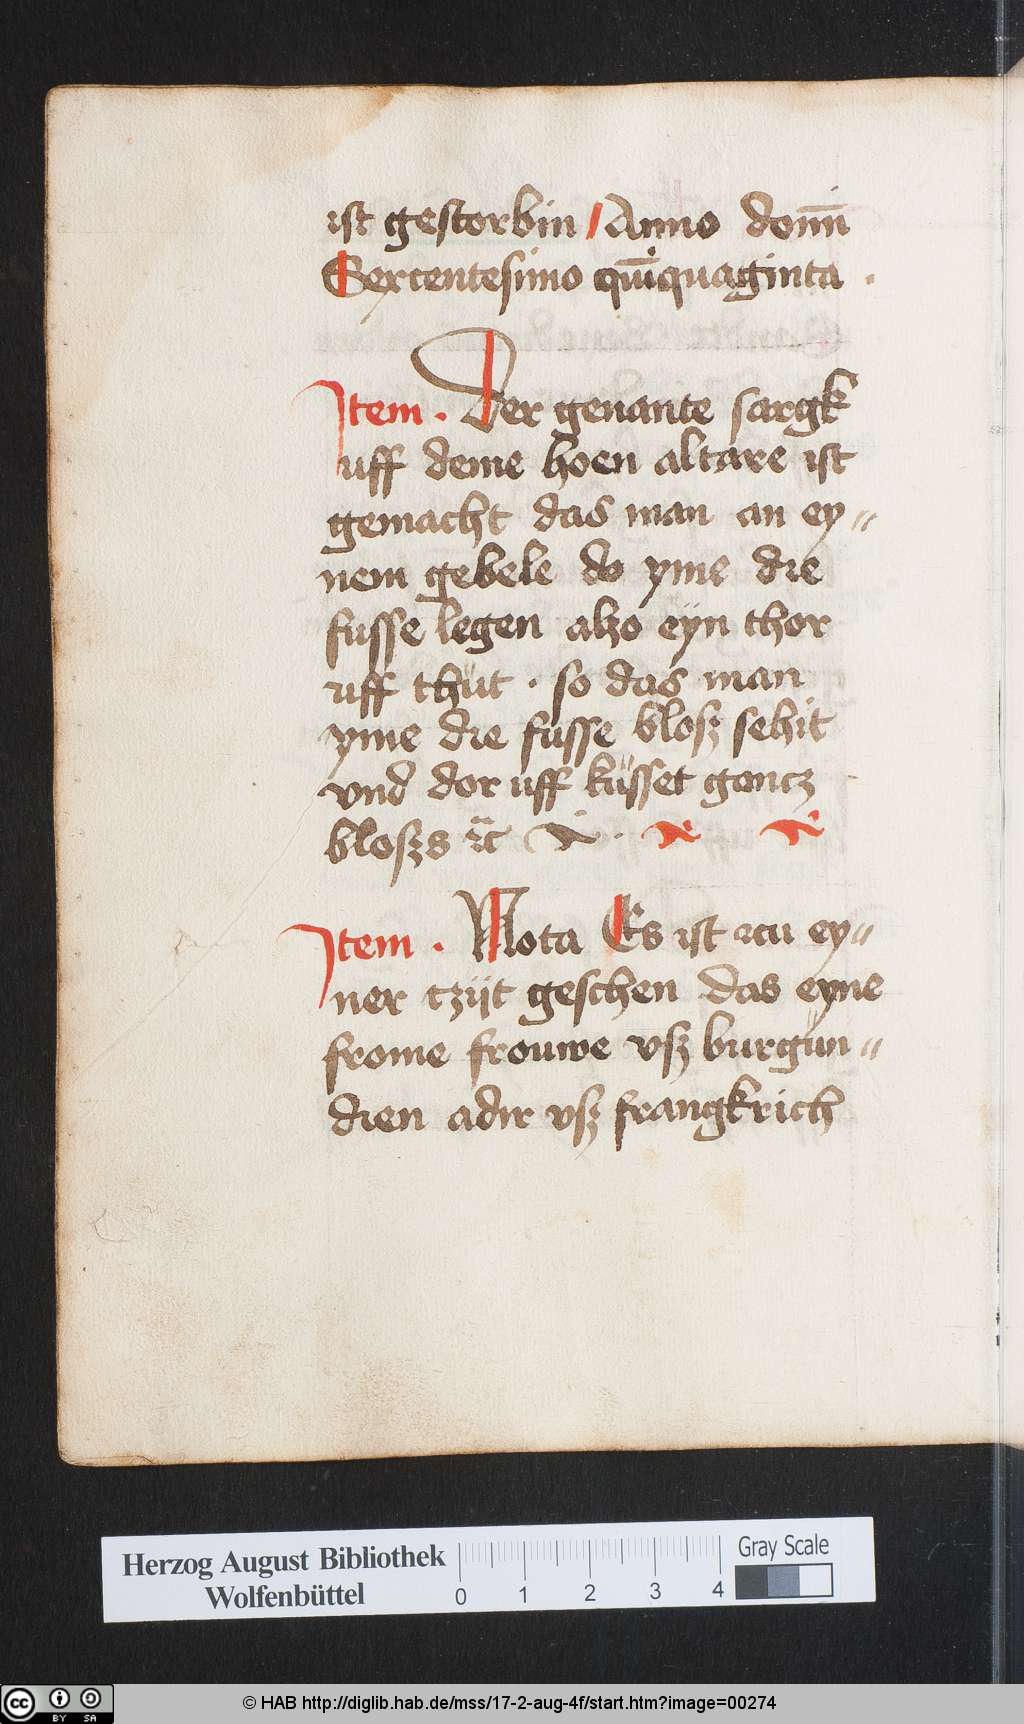 ist gestorbin / Anno domī
Sexcentesimo quīquaginta .
Item . Der genante sargk
uff deme hoen altare ist
gemacht das man an ey〃
nem gebele do yme die
fusse legen alzo eyn thor
uff thut · so das man
yme die fusse blosz sehit
vnd dor uff küsset gancz
bloszs ꝛc
Item . Nota Es ist zcu ey〃
ner tzijt geschen das eyne
frome frouwe vsz burgun〃
dien adir vsz frangkrich
Herzog August Bibliothek
Wolfenbüttel
0 1 2 3 4
Gray Scale
cc BY SA
© HAB http://diglib.hab.de/mss/17-2-aug-4f/start.htm?image=00274